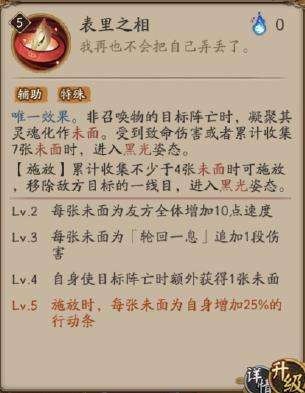 5
表里之相
0
我再也不会把自己弄丢了。
辅助 特殊
唯一效果。非召唤物的目标阵亡时，凝聚其
灵魂化作未面。受到致命伤害或者累计收集
7张未面时，进入黑光姿态。
【施放】累计收集不少于4张未面时可施放
，移除敌方目标的一线目，进入黑光姿态。
Lv.2 每张未面为友方全体增加10点速度
Lv.3 每张未面为「轮回一息」追加1段伤
害
Lv.4 自身使目标阵亡时额外获得1张未面
Lv.5 施放时，每张未面为自身增加25%的
行动条
详情
升级